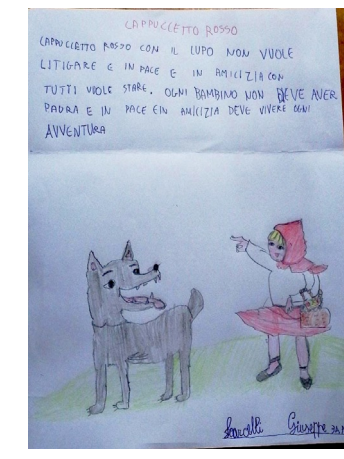 CAPPUCCETTO ROSSO
CAPPUCCETTO ROSSO CON IL LUPO NON VUOLE
LITIGARE E IN PACE E IN AMICIZIA CON
TUTTI VUOLE STARE. OGNI BAMBINO NON DEVE AVER
PAURA E IN PACE E IN AMICIZIA DEVE VIVERE OGNI
AVVENTURA
Giuseppe